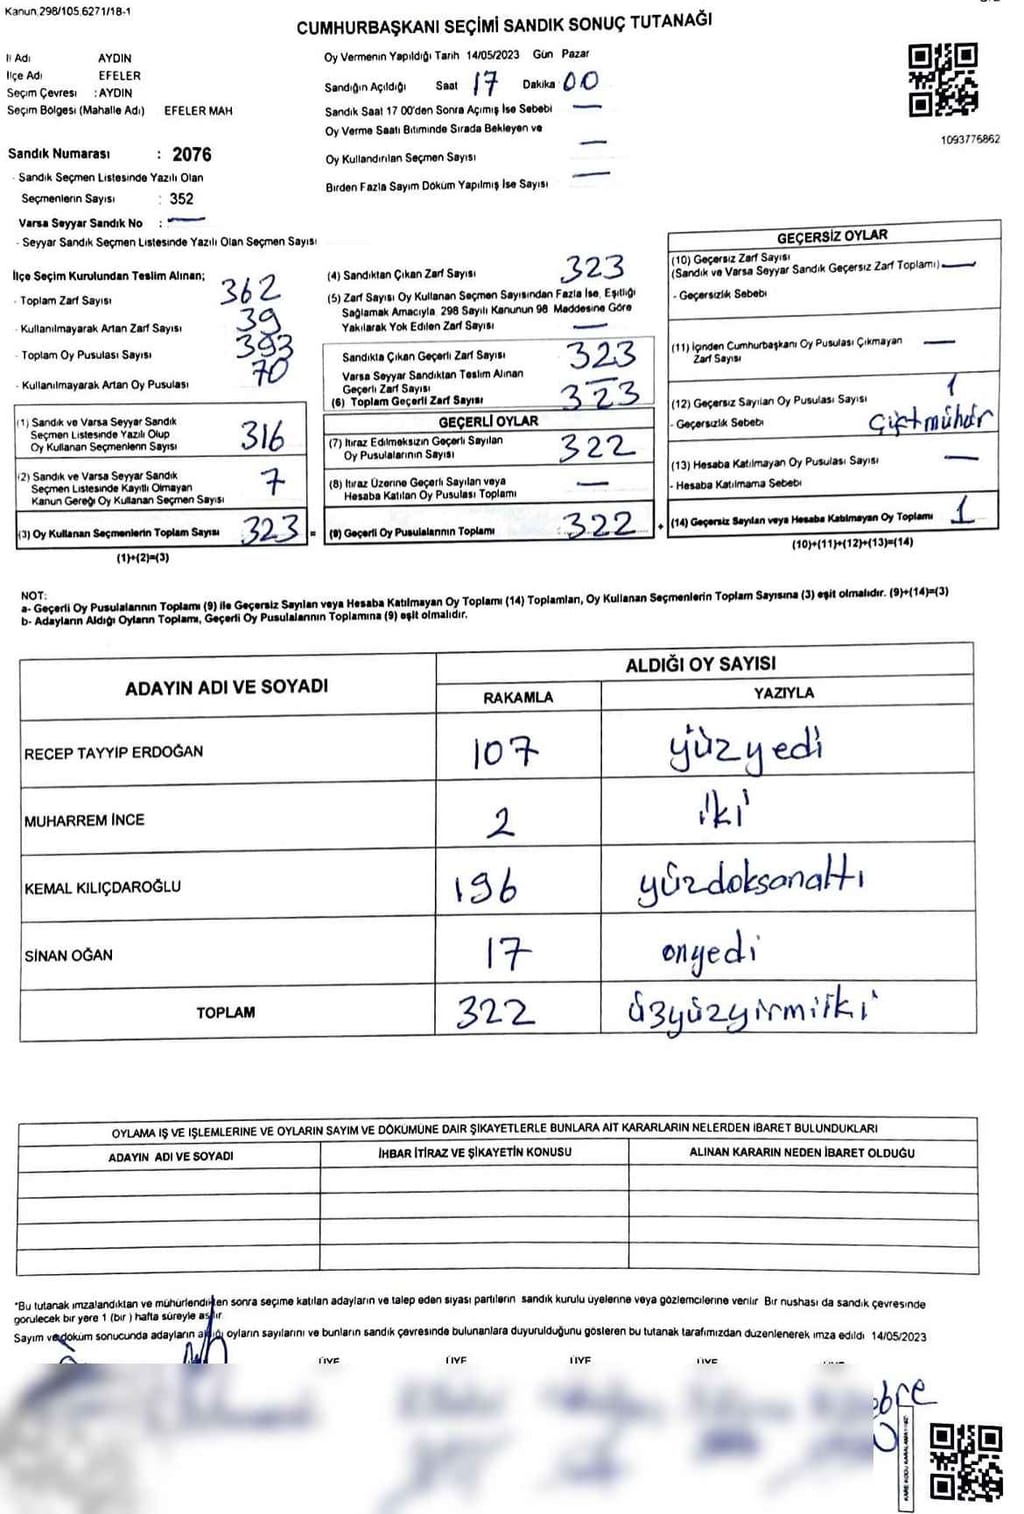 Kanun.298/105.6271/18-1
CUMHURBAŞKANI SEÇİMİ SANDIK SONUÇ TUTANAĞI
İl Adı AYDIN
İlçe Adı EFELER
Seçim Çevresi : AYDIN
Seçim Bölgesi (Mahalle Adı) EFELER MAH
Sandık Numarası : 2076
- Sandık Seçmen Listesinde Yazılı Olan
Seçmenlerin Sayısı : 352
Varsa Seyyar Sandık No : —
- Seyyar Sandık Seçmen Listesinde Yazılı Olan Seçmen Sayısı
Oy Vermenin Yapıldığı Tarih 14/05/2023 Gün Pazar
Sandığın Açıldığı Saat 17 Dakika 00
Sandık Saat 17 00'den Sonra Açımış İse Sebebi —
Oy Verme Saati Bitiminde Sırada Bekleyen ve
Oy Kullandırılan Seçmen Sayısı —
Birden Fazla Sayım Döküm Yapılmış İse Sayısı —
1093776862
İlçe Seçim Kurulundan Teslim Alınan;
- Toplam Zarf Sayısı 362
- Kullanılmayarak Artan Zarf Sayısı 39
- Toplam Oy Pusulası Sayısı 393
- Kullanılmayarak Artan Oy Pusulası 70
(1) Sandık ve Varsa Seyyar Sandık
Seçmen Listesinde Yazılı Olup
Oy Kullanan Seçmenlerin Sayısı 316
(2) Sandık ve Varsa Seyyar Sandık
Seçmen Listesinde Kayıtlı Olmayan
Kanun Gereği Oy Kullanan Seçmen Sayısı 7
(3) Oy Kullanan Seçmenlerin Toplam Sayısı 323 =
(1)+(2)=(3)
(4) Sandıktan Çıkan Zarf Sayısı 323
(5) Zarf Sayısı Oy Kullanan Seçmen Sayısından Fazla İse, Eşitliği
Sağlamak Amacıyla 298 Sayılı Kanunun 98 Maddesine Göre
Yakılarak Yok Edilen Zarf Sayısı —
Sandıkta Çıkan Geçerli Zarf Sayısı 323
Varsa Seyyar Sandıktan Teslim Alınan
Geçerli Zarf Sayısı —
(6) Toplam Geçerli Zarf Sayısı 323
GEÇERLİ OYLAR
(7) İtiraz Edilmeksizin Geçerli Sayılan
Oy Pusulalarının Sayısı 322
(8) İtiraz Üzerine Geçerli Sayılan veya
Hesaba Katılan Oy Pusulası Toplamı —
(9) Geçerli Oy Pusulalarının Toplamı 322 +
GEÇERSİZ OYLAR
(10) Geçersiz Zarf Sayısı
(Sandık ve Varsa Seyyar Sandık Geçersiz Zarf Toplamı) —
- Geçersizlik Sebebi
(11) İçinden Cumhurbaşkanı Oy Pusulası Çıkmayan
Zarf Sayısı —
(12) Geçersiz Sayılan Oy Pusulası Sayısı 1
- Geçersizlik Sebebi Çift mühür
(13) Hesaba Katılmayan Oy Pusulası Sayısı —
- Hesaba Katılmama Sebebi
(14) Geçersiz Sayılan veya Hesaba Katılmayan Oy Toplamı 1
(10)+(11)+(12)+(13)=(14)
NOT:
a- Geçerli Oy Pusulalarının Toplamı (9) ile Geçersiz Sayılan veya Hesaba Katılmayan Oy Toplamı (14) Toplamları, Oy Kullanan Seçmenlerin Toplam Sayısına (3) eşit olmalıdır. (9)+(14)=(3)
b- Adayların Aldığı Oyların Toplamı, Geçerli Oy Pusulalarının Toplamına (9) eşit olmalıdır.
ADAYIN ADI VE SOYADI
ALDIĞI OY SAYISI
RAKAMLA YAZIYLA
RECEP TAYYIP ERDOĞAN 107 yüzyedi
MUHARREM İNCE 2 iki
KEMAL KILIÇDAROĞLU 196 yüzdoksanaltı
SİNAN OĞAN 17 onyedi
TOPLAM 322 üzyüzyirmiiki
OYLAMA İŞ VE İŞLEMLERINE VE OYLARIN SAYIM VE DÖKÜMÜNE DAİR ŞİKAYETLERLE BUNLARA AİT KARARLARIN NELERDEN İBARET BULUNDUKLARI
ADAYIN ADI VE SOYADI İHBAR İTİRAZ VE ŞİKAYETİN KONUSU ALINAN KARARIN NEDEN İBARET OLDUĞU
*Bu tutanak imzalandıktan ve mühürlendikten sonra seçime katılan adayların ve talep eden siyasi partilerin sandık kurulu üyelerine veya gözlemcilerine verilir Bir nushası da sandık çevresinde
görülecek bir yere 1 (bir ) hafta süreyle asılır
Sayım ve döküm sonucunda adayların aldığı oyların sayılarını ve bunların sandık çevresinde bulunanlara duyurulduğunu gösteren bu tutanak tarafımızdan düzenlenerek imza edildi 14/05/2023
ÜYE ÜYE ÜYE ÜYE